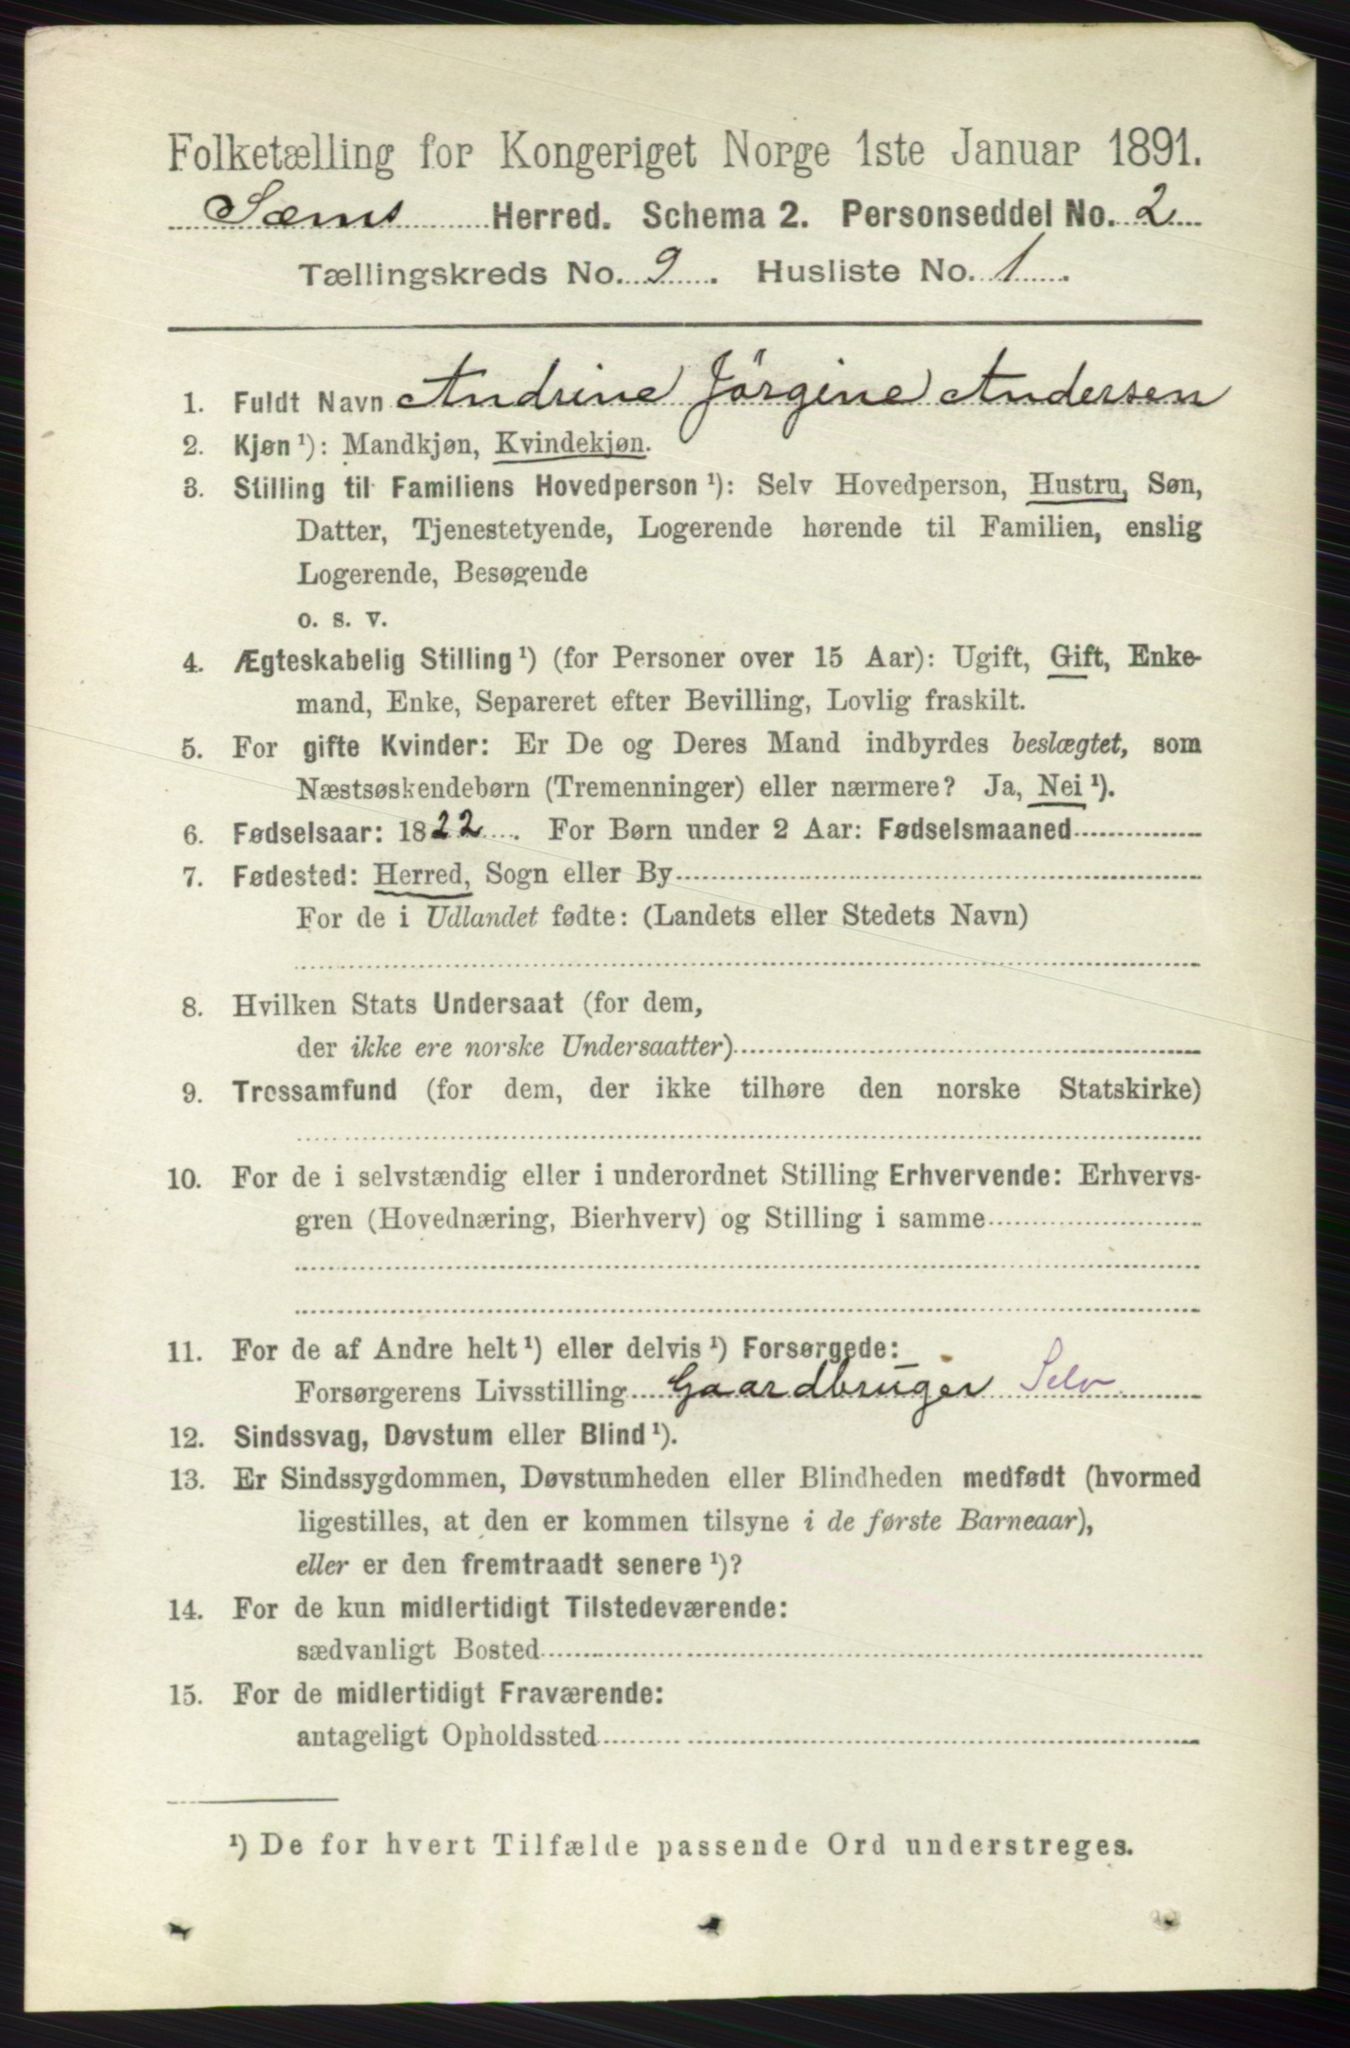 Folketælling for Kongeriget Norge 1ste Januar 1891.
Sæms Herred. Schema 2. Personseddel No. 2
Tællingskreds No. 9. Husliste No. 1.
1. Fuldt Navn Andrine Jörgine Andersen
2. Kjøn¹): Mandkjøn, Kvindekjøn.
3. Stilling til Familiens Hovedperson¹): Selv Hovedperson, Hustru, Søn,
Datter, Tjenestetyende, Logerende hørende til Familien, enslig
Logerende, Besøgende
o. s. v.
4. Ægteskabelig Stilling¹) (for Personer over 15 Aar): Ugift, Gift, Enke-
mand, Enke, Separeret efter Bevilling, Lovlig fraskilt.
5. For gifte Kvinder: Er De og Deres Mand indbyrdes beslægtet, som
Næstsøskendebørn (Tremenninger) eller nærmere? Ja, Nei¹).
6. Fødselsaar: 1822. For Børn under 2 Aar: Fødselsmaaned
7. Fødested: Herred, Sogn eller By
For de i Udlandet fødte: (Landets eller Stedets Navn)
8. Hvilken Stats Undersaat (for dem,
der ikke ere norske Undersaatter)
9. Trossamfund (for dem, der ikke tilhøre den norske Statskirke)
10. For de i selvstændig eller i underordnet Stilling Erhvervende: Erhvervs-
gren (Hovednæring, Bierhverv) og Stilling i samme
11. For de af Andre helt¹) eller delvis¹) Forsørgede:
Forsørgerens Livsstilling Gaardbruger Selv
12. Sindssvag, Døvstum eller Blind¹).
13. Er Sindssygdommen, Døvstumheden eller Blindheden medfødt (hvormed
ligestilles, at den er kommen tilsyne i de første Barneaar),
eller er den fremtraadt senere¹)?
14. For de kun midlertidigt Tilstedeværende:
sædvanligt Bosted
15. For de midlertidigt Fraværende:
antageligt Opholdssted
¹) De for hvert Tilfælde passende Ord understreges.